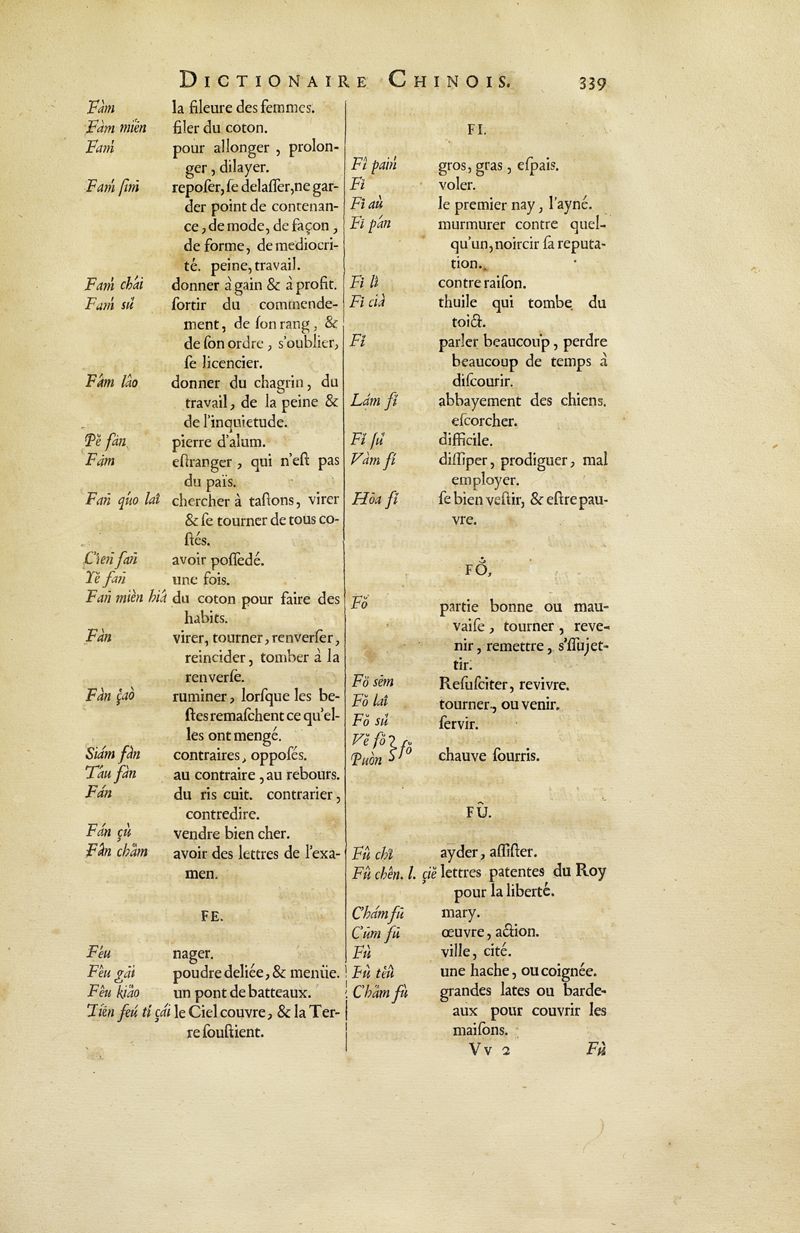 DICTIONAIRE CHINOIS. 339
Fàm la fileure des femmes.
Fàm miên filer du coton.
Fam̀ pour allonger , prolon-
ger , dilayer.
Fam̀ sim̀ reposer, se delasser, ne gar-
der point de contenan-
ce , de mode, de façon ,
de forme, de mediocri-
té. peine, travail.
Fam̀ châi donner à gain & à profit.
Fam̀ sú sortir du commende-
ment, de son rang , &
de son ordre , s'oublier,
se licencier.
Fâm lâo donner du chagrin, du
travail, de la peine &
de l'inquietude.
Pĕ fàn pierre d'alum.
Fâm estranger , qui n'est pas
du païs.
Fañ qúo laî chercher à tastons, virer
& se tourner de tous co-
stés.
C'ieñ fañ avoir possedé.
Yĕ fañ une fois.
Fañ mièn hiá du coton pour faire des
habits.
Fàn virer, tourner, renverser,
reincider, tomber à la
renverse.
Fàn çaò ruminer, lorsque les be-
stes remaschent ce qu'el-
les ont mengé.
Siám fàn contraires, opposés.
Táu fàn au contraire , au rebours.
Fán du ris cuit. contrarier,
contredire.
Fán çù vendre bien cher.
Fân châm avoir des lettres de l'exa-
men.
FE.
Féu nager.
Fêu gâi poudre deliée, & menüe.
Fêu kiâo un pont de batteaux.
Tiēn feú tí çái le Ciel couvre, & la Ter-
re soustient.
FI.
Fî pam̀ gros, gras , espais.
Fi voler.
Fi aù le premier nay , l'ayné.
Fi pán murmurer contre quel-
qu'un, noircir sa reputa-
tion.
Fi lì contre raison.
Fi cià thuile qui tombe du
toict.
Fí parler beaucoup , perdre
beaucoup de temps à
discourir.
Lám fí abbayement des chiens.
escorcher.
Fí sú difficile.
Vàm fí dissiper, prodiguer, mal
employer.
Hôa fí se bien vestir, & estre pau-
vre.
FŎ,
Fŏ partie bonne ou mau-
vaise , tourner , reve-
nir , remettre , s'ssujet-
tir.
Fŏ sêm Resusciter, revivre.
Fŏ laî tourner, ou venir.
Fŏ sú servir.
Vĕ fŏ
Puòn fo chauve souris.
FÛ.
Fû chî ayder, assister.
Fû chên. l. çiĕ lettres patentes du Roy
pour la liberté.
Chámfû mary.
Cūm fū œuvre, action.
Fù ville, cité.
Fù têû une hache, ou coignée.
Châm fù grandes lates ou barde-
aux pour couvrir les
maisons.
Vv 2 Fù